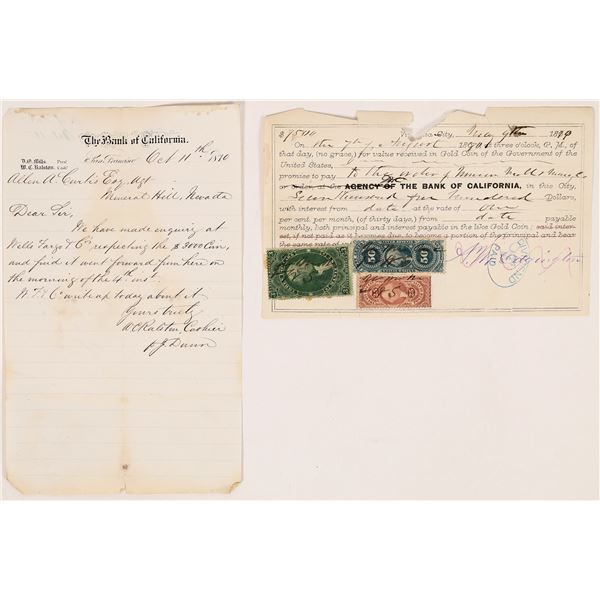 The Bank of California.
D.O. Mills, Prest
W.C. Ralston, Cashr
San Francisco Oct 11th 1870
Allen A. Curtis Esq. Agt
Mineral Hill, Nevada
Dear Sir,
We have made enquiry at
Wells Fargo & Co respecting the $3000 Coin,
and find it went forward from here on
the morning of the 4th inst.
W. F. & Co write up today about it
Yours truly
W C Ralston Cashier
p J. Dunn
$7500 Virginia City, May 9th 1870
On the 7th of August 1870 at three o'clock, P. M., of
that day, (no grace,) for value received in Gold Coin of the Government of the
United States, promise to pay to the order of
or order, at the AGENCY OF THE BANK OF CALIFORNIA, in this City,
Seven thousand five hundred Dollars,
with interest from date at the rate of one
per cent. per month, (of thirty days,) from date payable
monthly, both principal and interest payable in like Gold Coin; said inter-
est, if not paid as it becomes due, to become a portion of the principal and bear
the same rate of
50 50
PAID